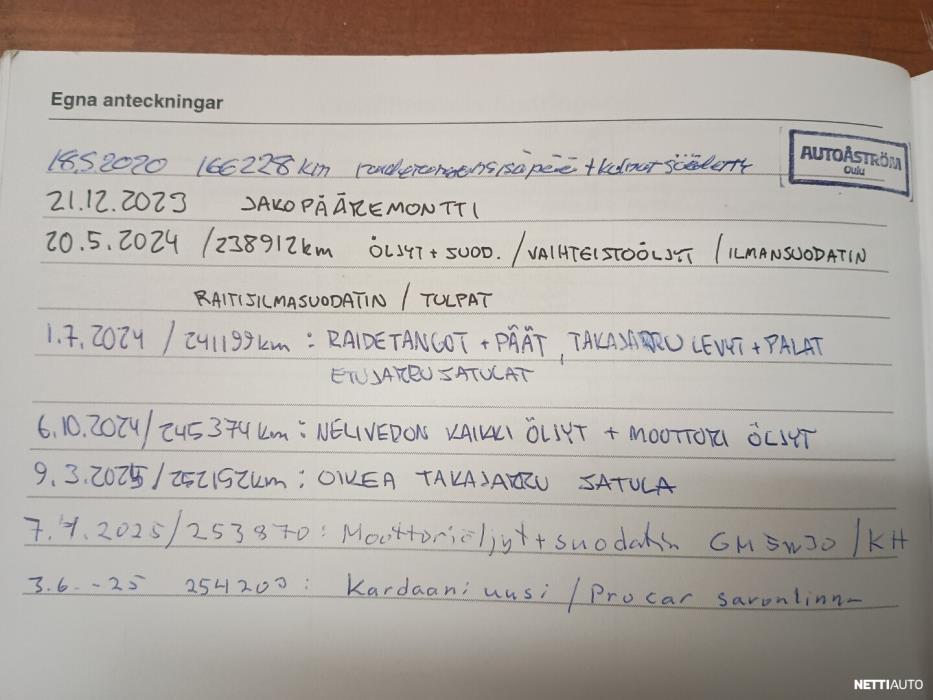 Egna anteckningar
18.5.2020 166228 km + kulmat säädetty
AUTOÅSTRÖM
Oulu
21.12.2023 JAKOPÄÄREMONTTI
20.5.2024 /238912km ÖLJYT + SUOD. /VAIHTEISTOÖLJYT /ILMANSUODATIN
RAITISILMASUODATIN / TULPAT
1.7.2024 / 241199km : RAIDETANGOT + PÄÄT, TAKAJARRU LEVYT + PALAT
ETUJARRU SATULAT
6.10.2024/245374km : NELIVEDON KAIKKI ÖLJYT + MOOTTORI ÖLJYT
9.3.2025/252152km : OIKEA TAKAJARRU SATULA
7.4.2025/253870 : Moottoriöljyt + suodatin GM 5w30 /KH
3.6.-25 254200 : Kardaani uusi / Procar savonlinna
NETTIAUTO